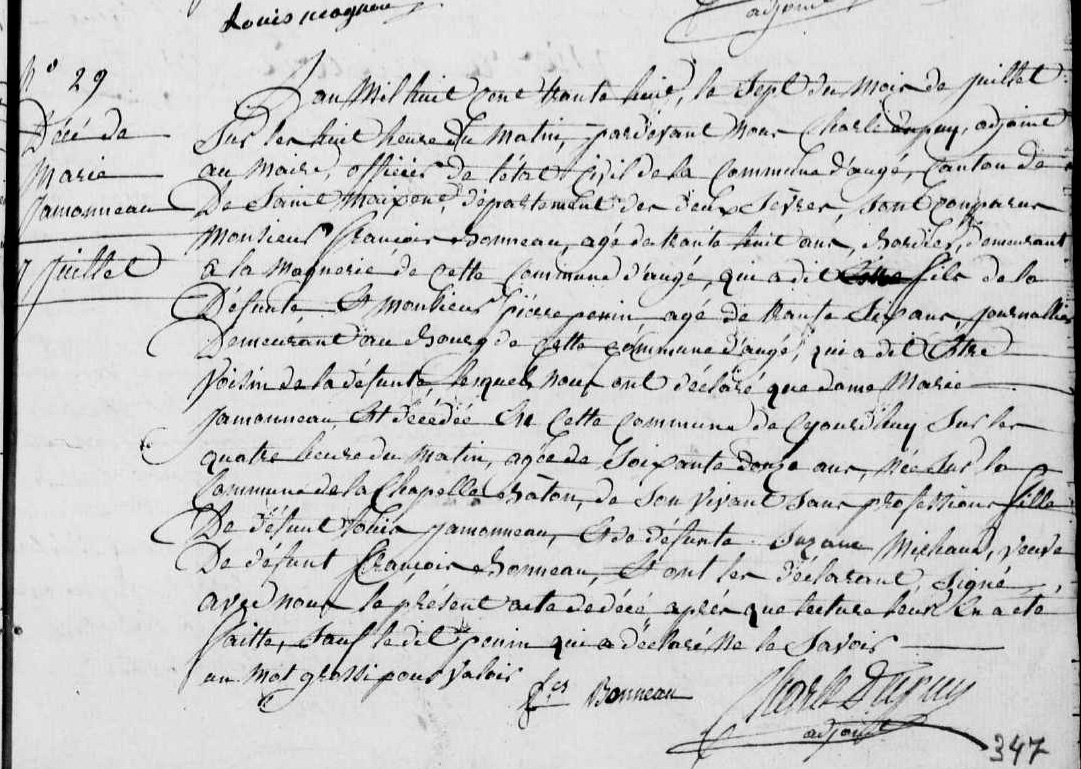 Louis magneu
adjoint
N° 29
Décé de
Marie
Jamonneau
7 Juillet
L'an Mil huit cent trante huit, le Sept du mois de juillet
Sur les huit heure du matin, pardevant nous Charle dupuy, adjoint
au Maire, officier de l'état Civil de la Commune d'augé, Canton de
De Saint Maixent, département des deux Sèvres, Sont comparus
Monsieur François Bonneau, agé de trante huit ans, Bordier, demeurant
à la Magnerie de cette Commune d'augé, qui a dit Estre fils de la
Défunte Et Monsieur Pierre ponin agé de trante Six ans, journallier
Demeurant au Bourg de Cette Commune d'augé, qui a dit Estre
Voisin de la défunte lesquels nous ont déclaré que dame Marie
Jamonneau Et décédée En Cette Commune de Cejourdhuy Sur les
quatre heure du Matin, agée de Soixante douze ans, Née Sur la
Commune de la Chapelle Bâton, de Son vivant Sans profession fille
De défunt Louis Jamonneau, Et de défunte Suzane Michaud, veuve
De défunt François Bonneau, Et ont les déclarant Signé
avec nous le présent acte de décé après que lecture leur En a été
faitte, Sauf le dit ponin qui a déclaré Ne le Savoir
un Mot grossi pour valoir
fçs Bonneau
Charle Dupuy
adjoint
347